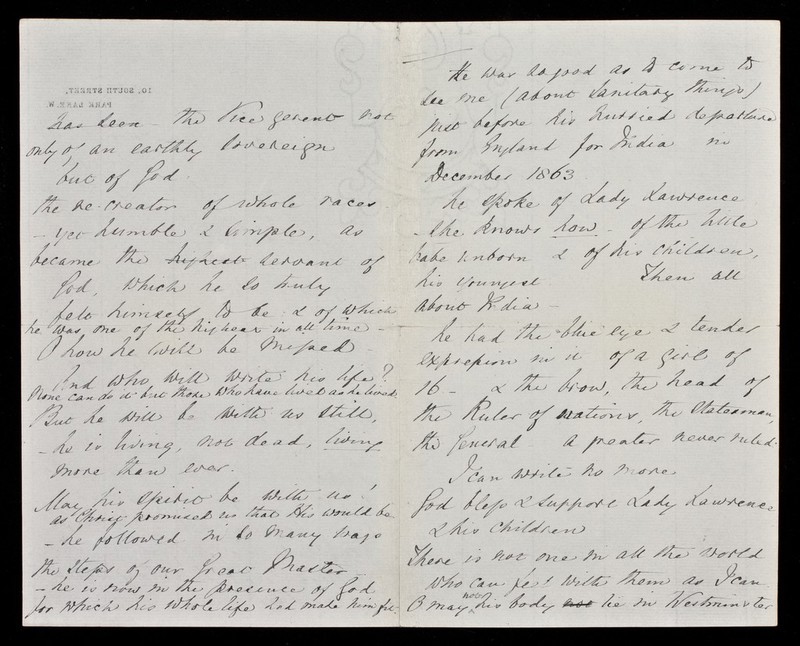 10, SOUTH STREET,
PARK LANE, W.
has been - the Vice gerent not
only of an earthly Sovereign
but of God.
the re-creator of whole races -
- yet humble & simple, as
became the highest servant of
God, which he so truly
felt himself to be - & of which
he was one of the highest in all time -
O how he will be missed -
And who will write his life?
None can do it but those who have lived as he lived.
But he will be with us still,
- he is living, not dead, living
more than ever.
May his spirit be with us!
as Christ promised us that His would be
- he followed in so many ways
the steps of our Great Master
- he is now in the presence of God
for which his whole life had made him fit.
He was so good as to come to
see me (about Sanitary things)
just before his hurried departure
from England for India in
December 1863.
he spoke of Lady Lawrence
- she knows how - of the little
babe unborn & of his children,
his youngest Then all
about India -
he had the blue eye & tender
expression in it of a girl of
16 - & the brow, the head of
the Ruler of nations, the Statesman,
the General - a greater never ruled.
I can write no more
God bless & support Lady Lawrence
& his children
There is not one in all the world
who can feel with them as I can.
O may not his body not lie in Westminster